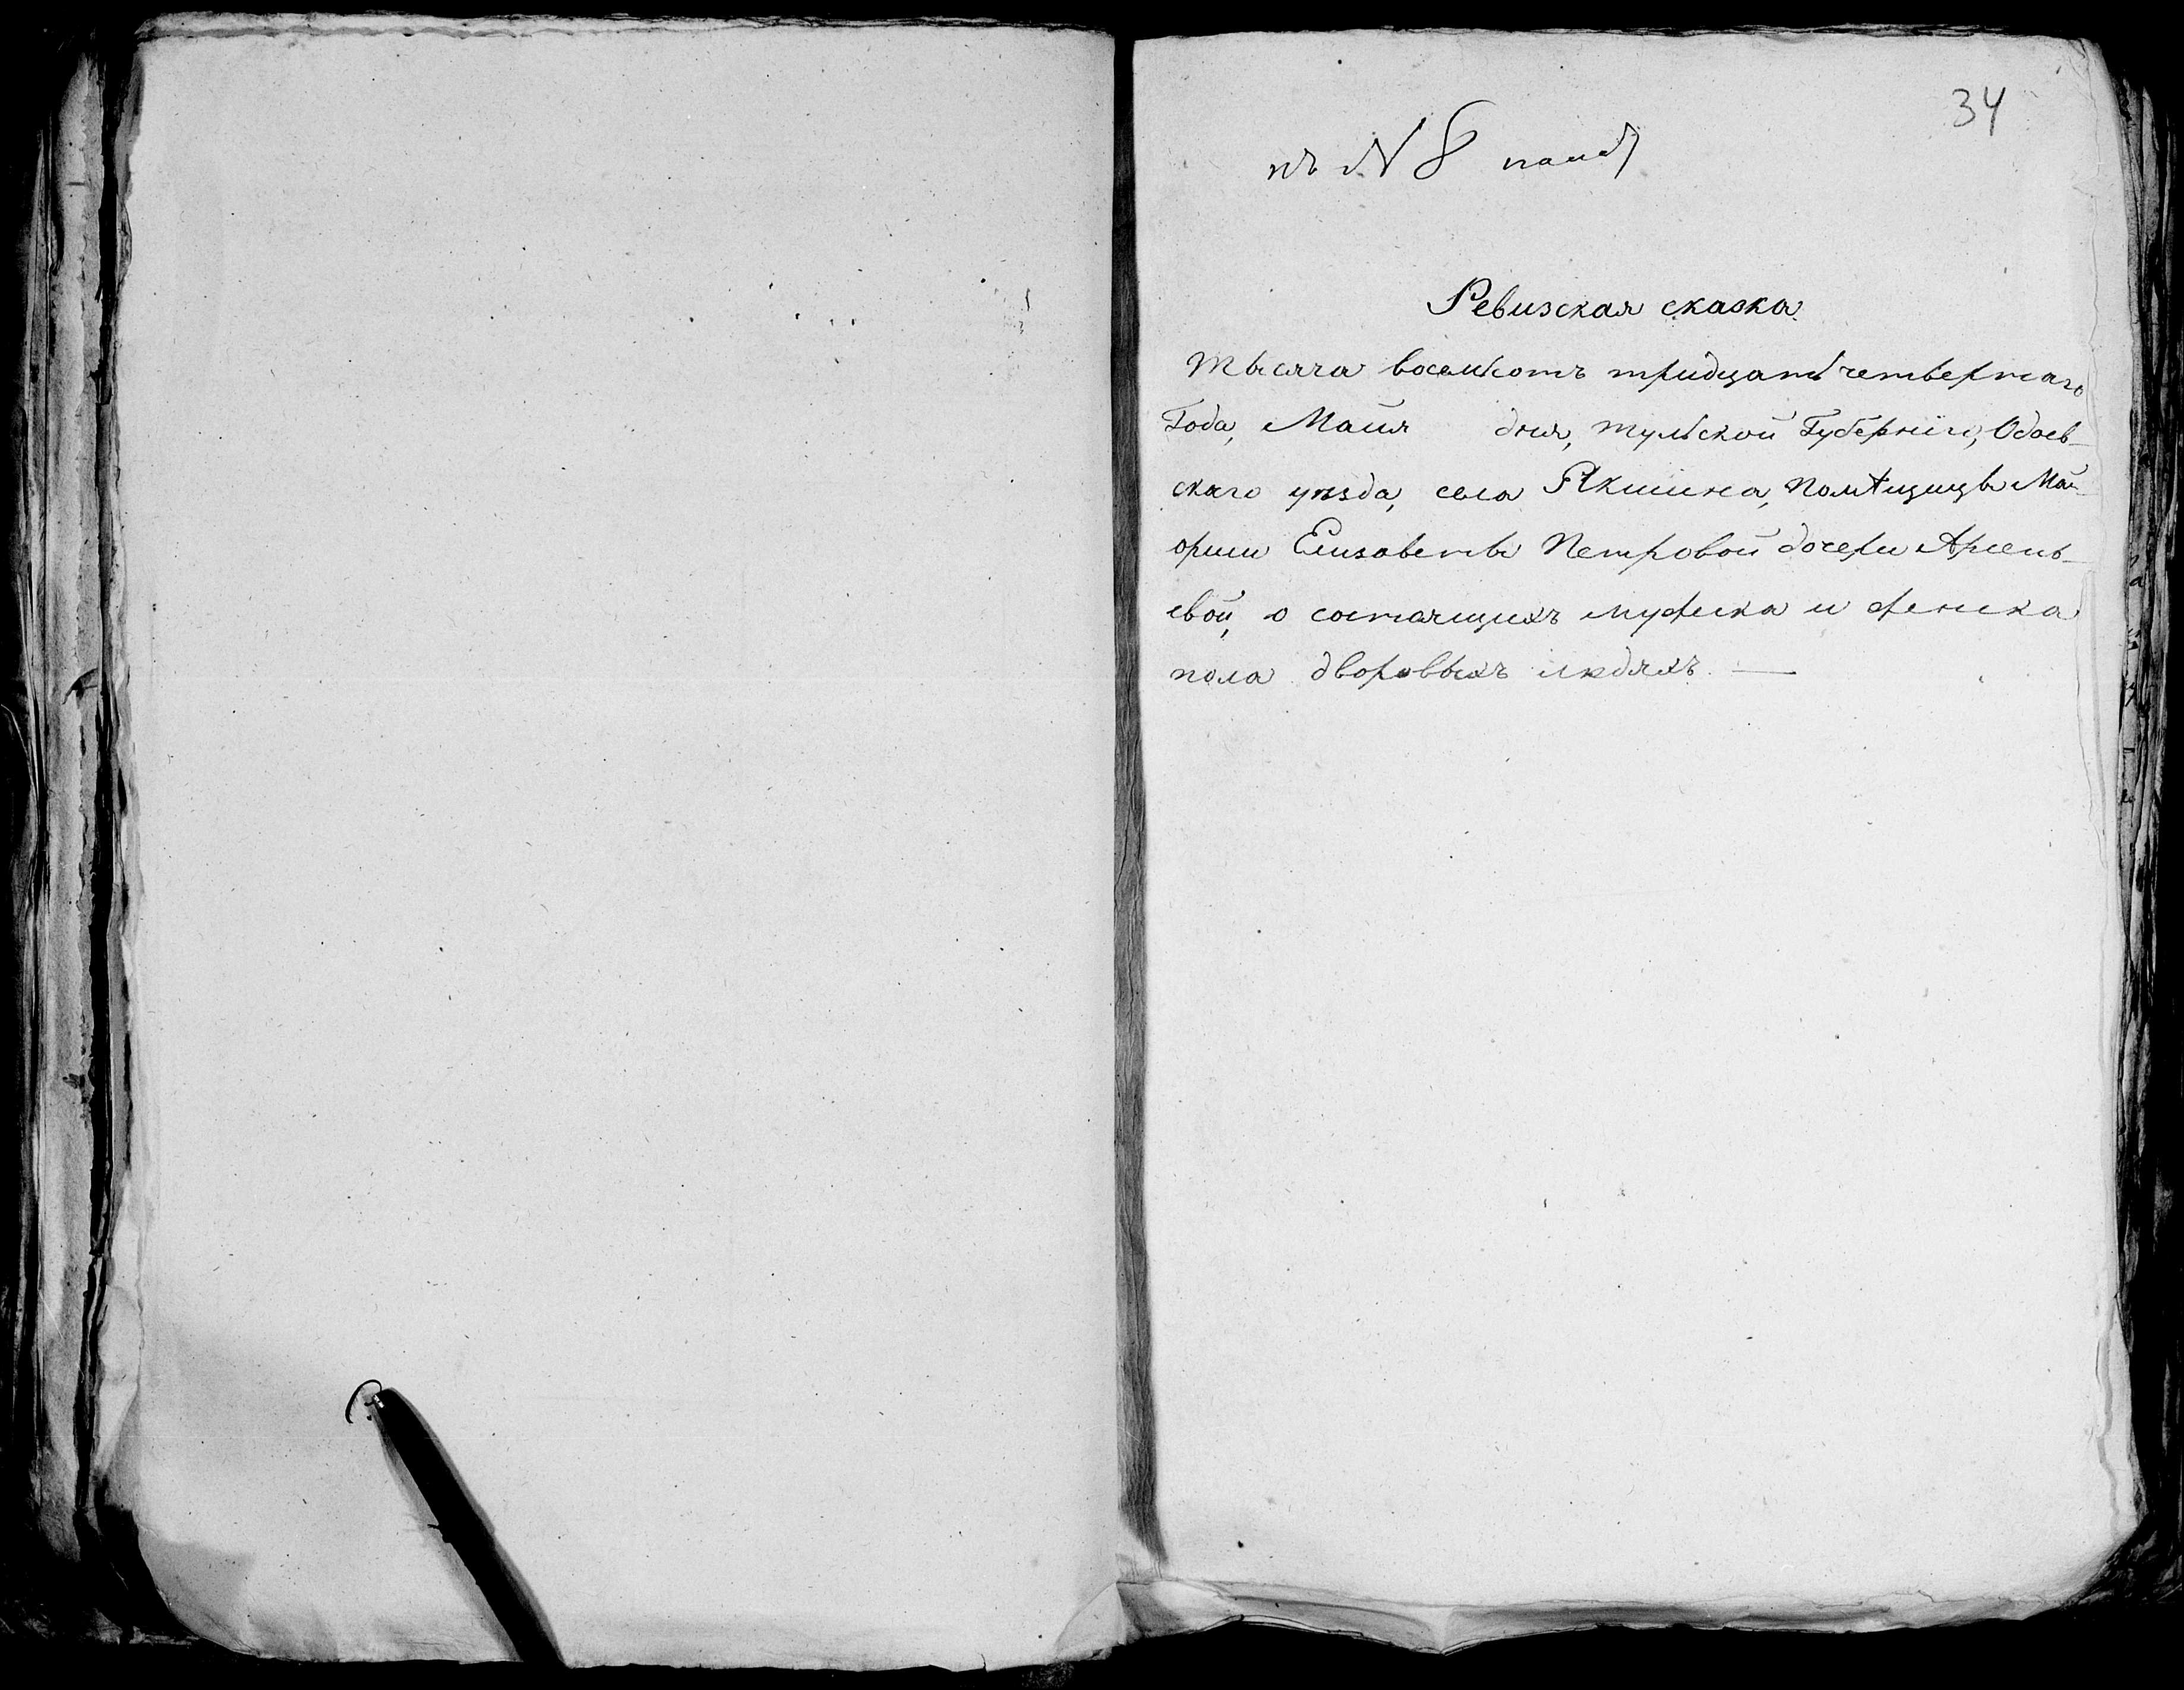 34
къ N 8
Ревизская сказка
Тысяча восемсотъ тридцать четвертаго
Года, Майя дня, Тульской Губернiи, Одоев-
скаго уѣзда, села Якшина, помѣщицы Маi-
орши Елизаветы Петровой дочери Арсень-
евой, о состоящихъ мужеска и женска
пола дворовыхъ людяхъ. —